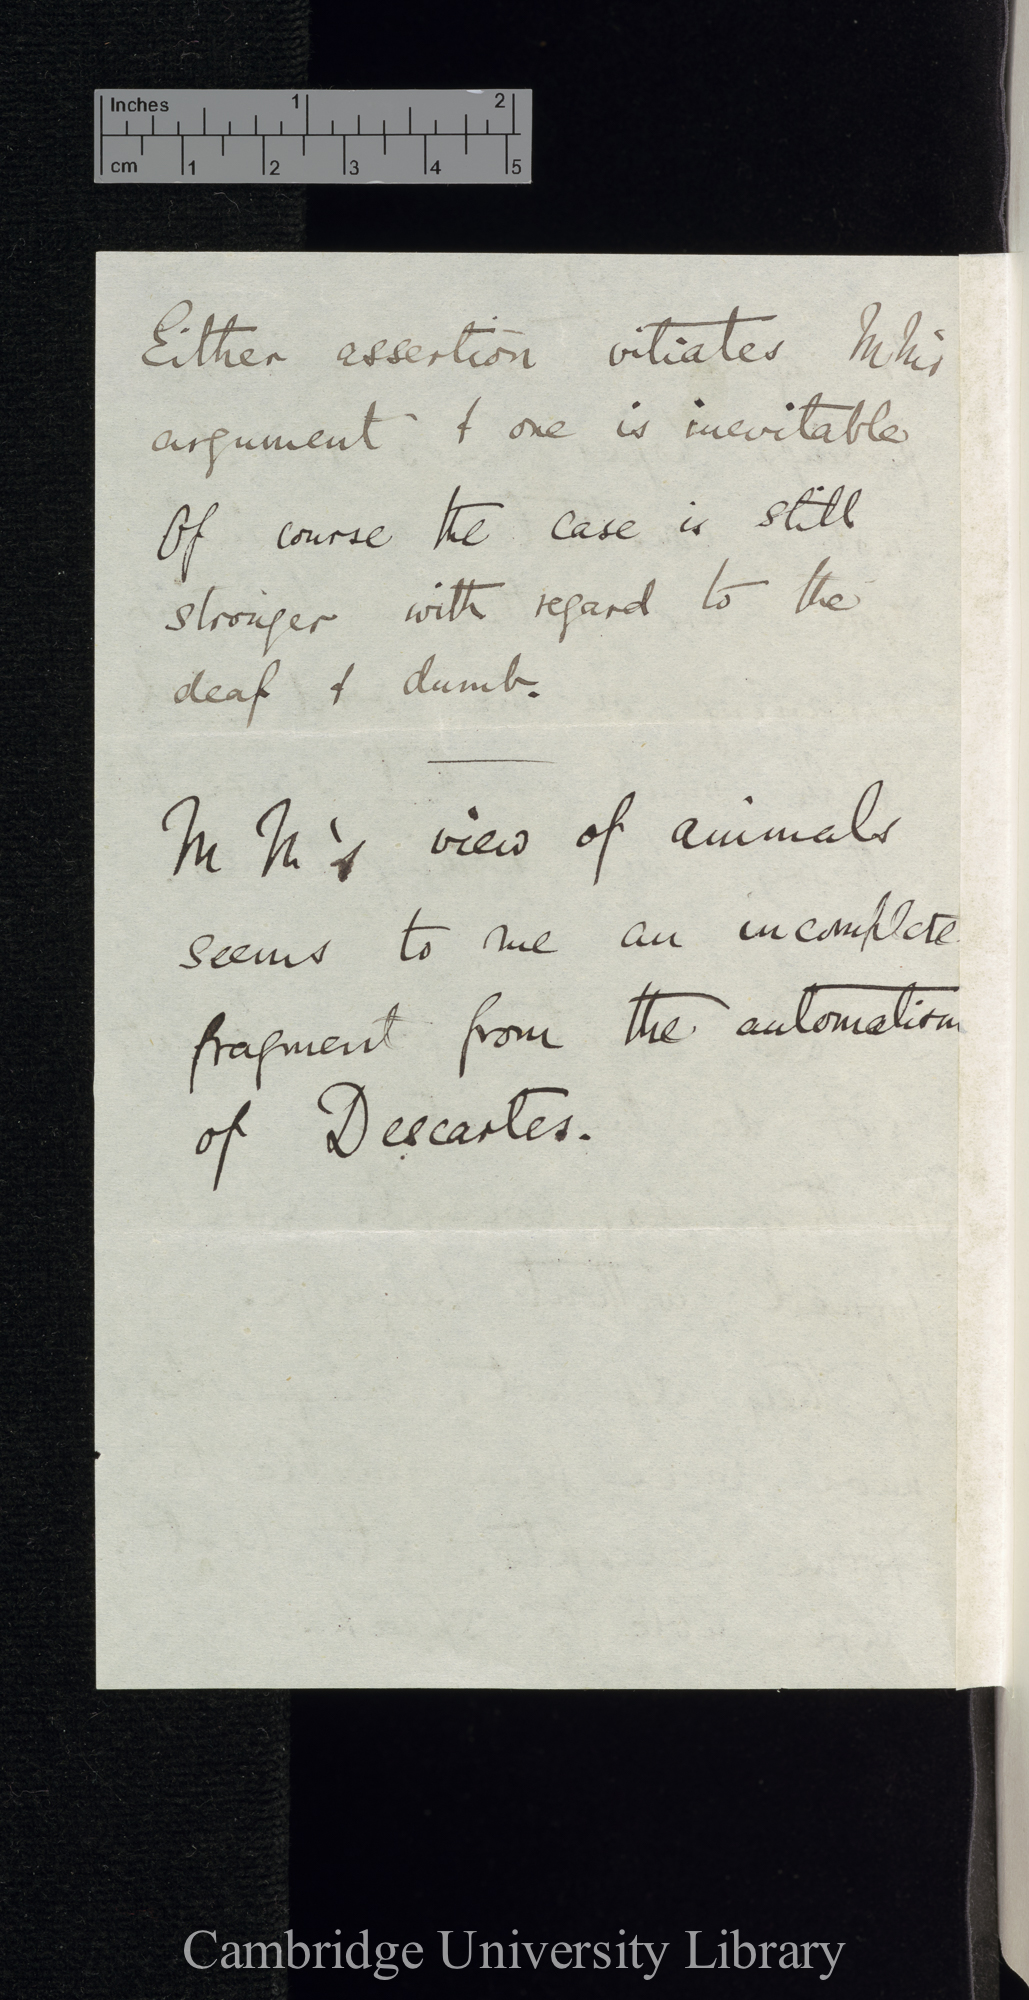 Inches 1 2
cm 1 2 3 4 5
Either assertion vitiates MM's
argument & one is inevitable
Of course the case is still
stronger with regard to the
deaf & dumb.
M M's view of animals
seems to me an incomplete
fragment from the automatism
of Descartes.
Cambridge University Library